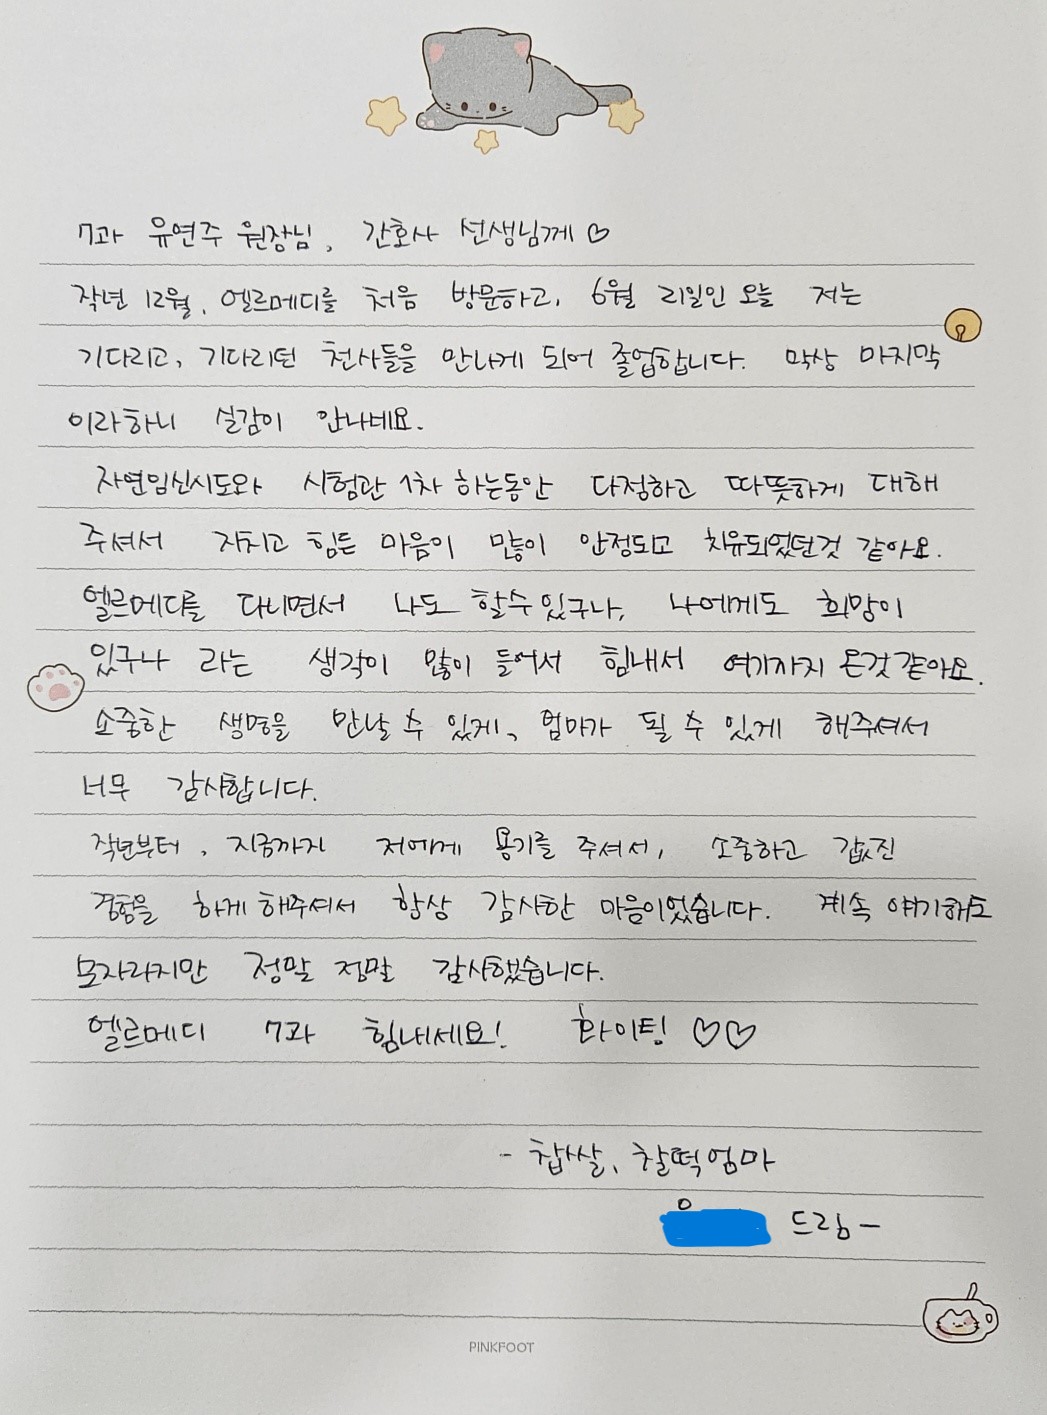 7과 유연주 원장님, 간호사 선생님께 ♡
작년 12월, 엘르메디를 처음 방문하고, 6월 21일인 오늘 저는
기다리고, 기다리던 천사들을 만나게 되어 졸업합니다. 막상 마지막
이라하니 실감이 안나네요.
자연임신시도와 시험관 1차 하는동안 다정하고 따뜻하게 대해
주셔서 지치고 힘든 마음이 많이 안정되고 치유되었던것 같아요.
엘르메디를 다니면서 나도 할수있구나, 나에게도 희망이
있구나 라는 생각이 많이 들어서 힘내서 여기까지 온것같아요.
소중한 생명을 만날 수 있게, 엄마가 될 수 있게 해주셔서
너무 감사합니다.
작년부터, 지금까지 저에게 용기를 주셔서, 소중하고 값진
경험을 하게 해주셔서 항상 감사한 마음이었습니다. 계속 얘기해도
모자라지만 정말 정말 감사했습니다.
엘르메디 7과 힘내세요! 화이팅! ♡♡
- 찹쌀, 찰떡엄마
드림-
PINKFOOT